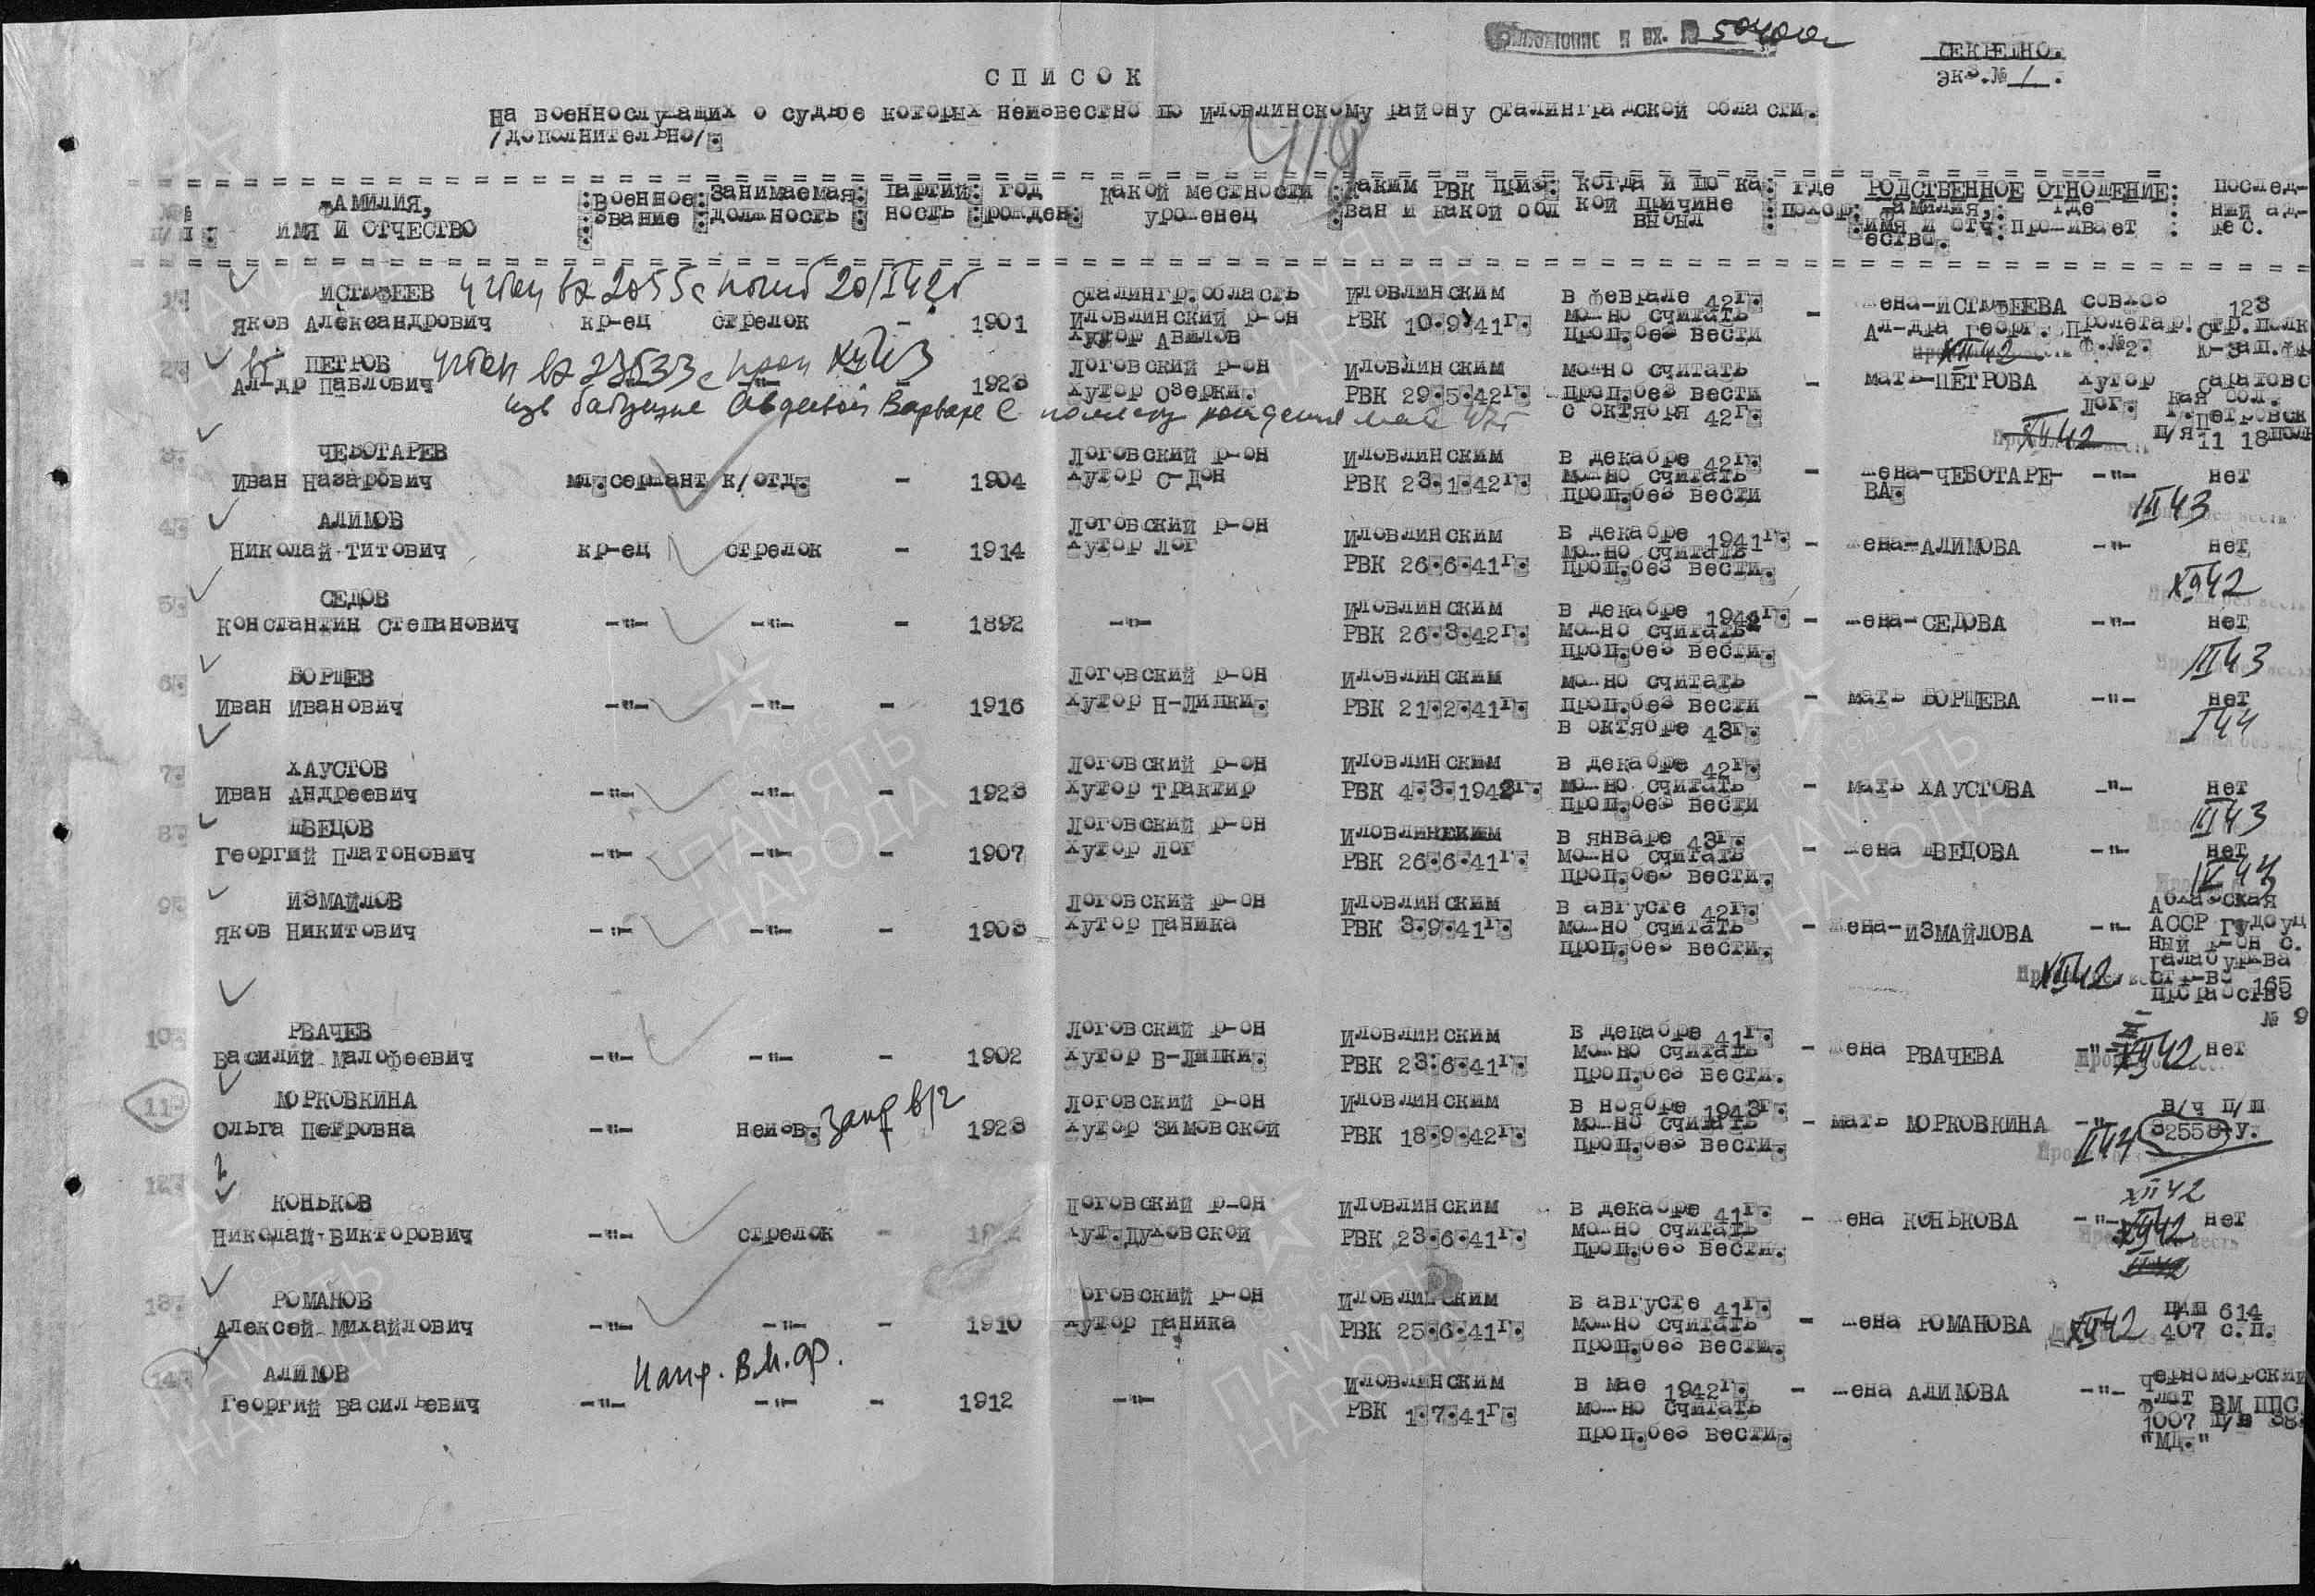 СЕКРЕТНО.
экз.№ 1.
СПИСОК
На военнослужащих о судьбе которых неизвестно по Иловлинскому району Сталинградской области.
/дополнительно/.
№№ п/п : ФАМИЛИЯ, ИМЯ И ОТЧЕСТВО : Военное звание : Занимаемая должность : Партийность : Год рожден : Какой местности уроженец : Каким РВК призван и какой обл : Когда и по какой причине : Где похор. : РОДСТВЕННОЕ ОТНОШЕНИЕ: Фамилия, имя и отчество. : где проживает : Последний адрес.
1. ИСТЮФЕЕВ
Яков Александрович кр-ец стрелок - 1901 Сталингр.область Иловлинский р-он Хутор Авилов Иловлинским РВК 10.9.41г. в феврале 42г. можно считать проп.без вести - жена-ИСТЮФЕЕВА Ал-дра Георг. совхоз Пролетар. Ф.№2. 123
2. ПЕТРОВ
Ал-др Павлович -"- - 1923 Логовский р-он Хутор Озерки. Иловлинским РВК 29.5.42г. можно считать проп.без вести с октября 42г. - мать-ПЕТРОВА Хутор Лог. Саратовская обл. г.Петровск п/я 11 18 полк
3. ЧЕБОТАРЕВ
Иван Назарович мл.сержант к/отд. - 1904 Логовский р-он Хутор С-Дон Иловлинским РВК 23.1.42г. в декабре 42г. можно считать проп.без вести - жена-ЧЕБОТАРЕВА. -"- нет
III 43
4. АЛИМОВ
Николай Титович кр-ец стрелок - 1914 Логовский р-он Хутор Лог Иловлинским РВК 26.6.41г. в декабре 1941г. можно считать проп.без вести. - жена-АЛИМОВА -"- нет
5. СЕДОВ
Константин Степанович -"- -"- - 1892 -"- Иловлинским РВК 26.3.42г. в декабре 1942г. можно считать проп.без вести. - жена-СЕДОВА -"- нет
III 43
6. БОРЩЕВ
Иван Иванович -"- -"- - 1916 Логовский р-он Хутор Н-Липки. Иловлинским РВК 21.2.41г. можно считать проп.без вести в октябре 43г. - мать БОРЩЕВА -"- нет
I 44
7. ХАУСТОВ
Иван Андреевич -"- -"- - 1923 Логовский р-он Хутор Трактир Иловлинским РВК 4.3.1942г. в декабре 42г. можно считать проп.без вести - мать ХАУСТОВА -"- нет
III 43
8. ШВЕЦОВ
Георгий Платонович -"- -"- - 1907 Логовский р-он Хутор Лог Иловлинским РВК 26.6.41г. в январе 43г. можно считать проп.без вести. - жена ШВЕЦОВА -"- нет
9. ИЗМАЙЛОВ
Яков Никитович -"- -"- - 1903 Логовский р-он Хутор Паника Иловлинским РВК 3.9.41г. в августе 42г. можно считать проп.без вести. - жена-ИЗМАЙЛОВА -"- АССР ный р-он с. стр-во 165 № 9
XII 42
10. РВАЧЕВ
Василий Малофеевич -"- -"- - 1902 Логовский р-он Хутор В-Липки. Иловлинским РВК 23.6.41г. в декабре 41г. можно считать проп.без вести. - жена РВАЧЕВА -"- нет
11. МОРКОВКИНА
Ольга Петровна -"- неизв. - 1923 Логовский р-он Хутор Зимовской Иловлинским РВК 18.9.42г. в ноябре 1943г. можно считать проп.без вести. - мать МОРКОВКИНА -"- в/ч п/п 32558-У.
II 44
12. КОНЬКОВ
Николай Викторович -"- стрелок - Логовский р-он Хут.Духовской Иловлинским РВК 23.6.41г. в декабре 41г. можно считать проп.без вести. - жена КОНЬКОВА -"- нет
XII 42
13. РОМАНОВ
Алексей Михайлович -"- -"- - 1910 Логовский р-он Хутор Паника Иловлинским РВК 25.6.41г. в августе 41г. можно считать проп.без вести. - жена РОМАНОВА ппп 614 407 с.п.
14. АЛИМОВ
Георгий Васильевич -"- -"- - 1912 -"- Иловлинским РВК 1.7.41г. в мае 1942г. можно считать проп.без вести. - жена АЛИМОВА -"- Черноморский флот ВМ ППС 1007 п/я "МД."
Напр. В.М.Ф.
ПАМЯТЬ НАРОДА